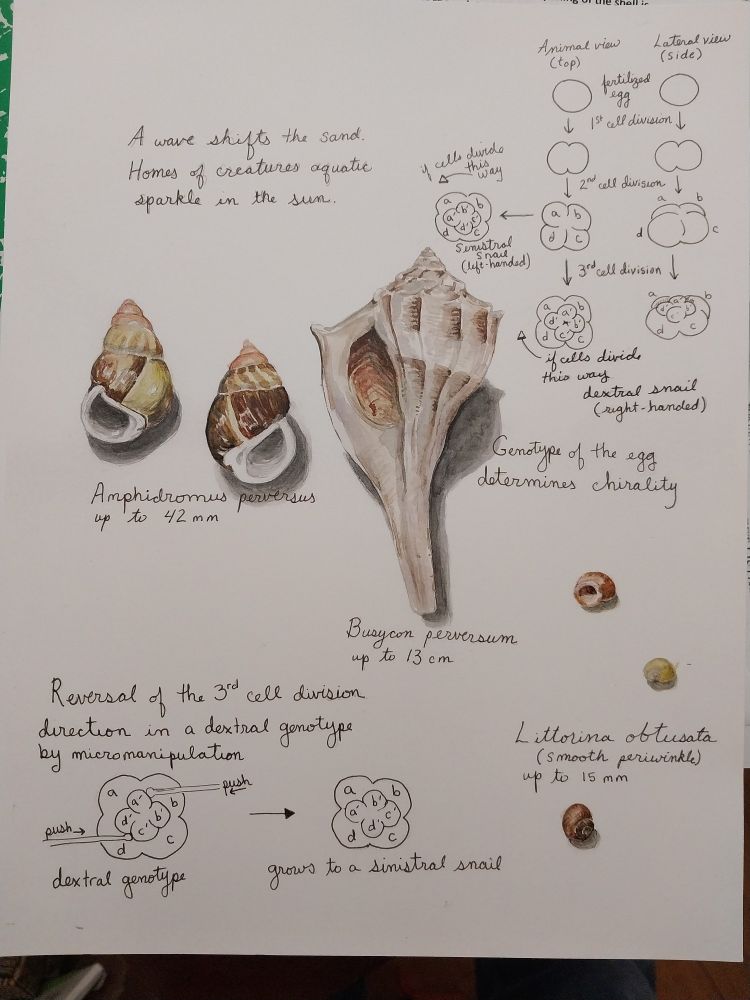 Animal view
(top)
Lateral view
(side)
fertilized
egg
1st cell division
2nd cell division
a
b
d
c
a
b
d
c
if cells divide
this
way
a
b
a'
b'
d'
c'
d
c
Senistral
snail
(left-handed)
3rd cell division
a
b
a'
d'
b'
c'
d
c
a
b
d
c
if cells divide
this way
dextral snail
(right-handed)
A wave shifts the sand.
Homes of creatures aquatic
sparkle in the sun.
Genotype of the egg
determines chirality
Amphidromus perversus
up to 42 mm
Busycon perversum
up to 13 cm
Littorina obtusata
(smooth periwinkle)
up to 15 mm
Reversal of the 3rd cell division
direction in a dextral genotype
by micromanipulation
a
b
a'
d'
b'
c'
d
c
push
push
dextral genotype
a
b
a'
b'
d'
c'
d
c
grows to a sinistral snail